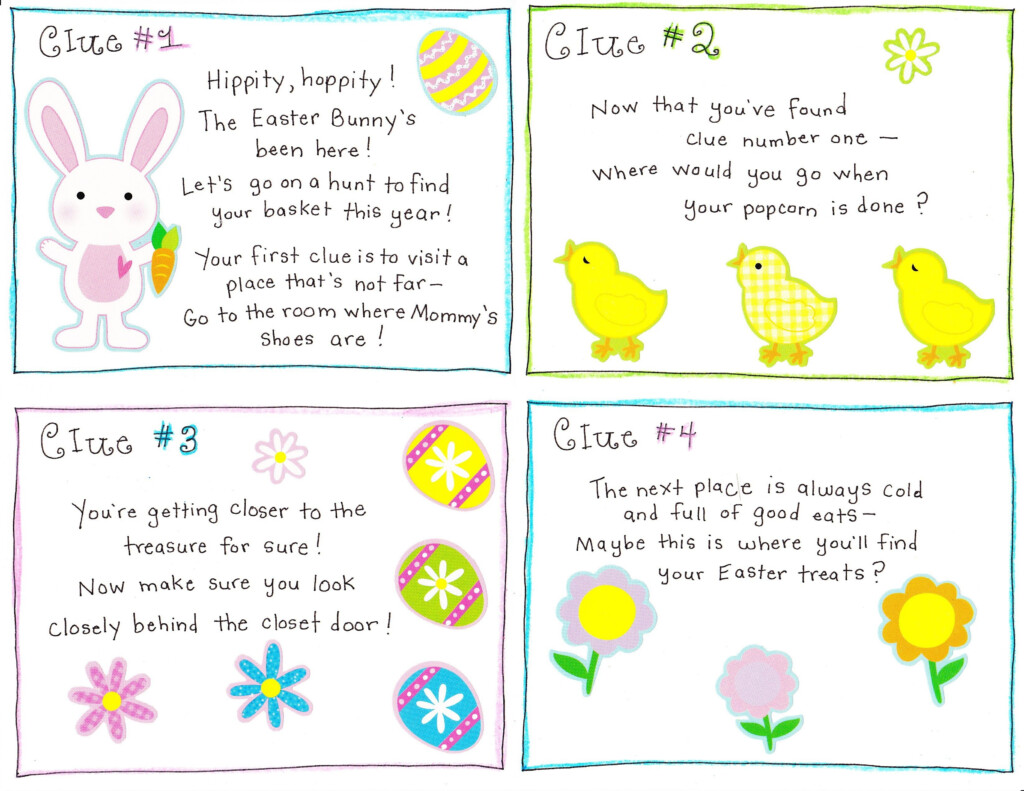 Clue #1
Hippity, hoppity!
The Easter Bunny's
been here!
Let's go on a hunt to find
your basket this year!
Your first clue is to visit a
place that's not far—
Go to the room where Mommy's
shoes are!
Clue #2
Now that you've found
clue number one —
Where would you go when
your popcorn is done?
Clue #3
You're getting closer to the
treasure for sure!
Now make sure you look
closely behind the closet door!
Clue #4
The next place is always cold
and full of good eats—
Maybe this is where you'll find
your Easter treats?